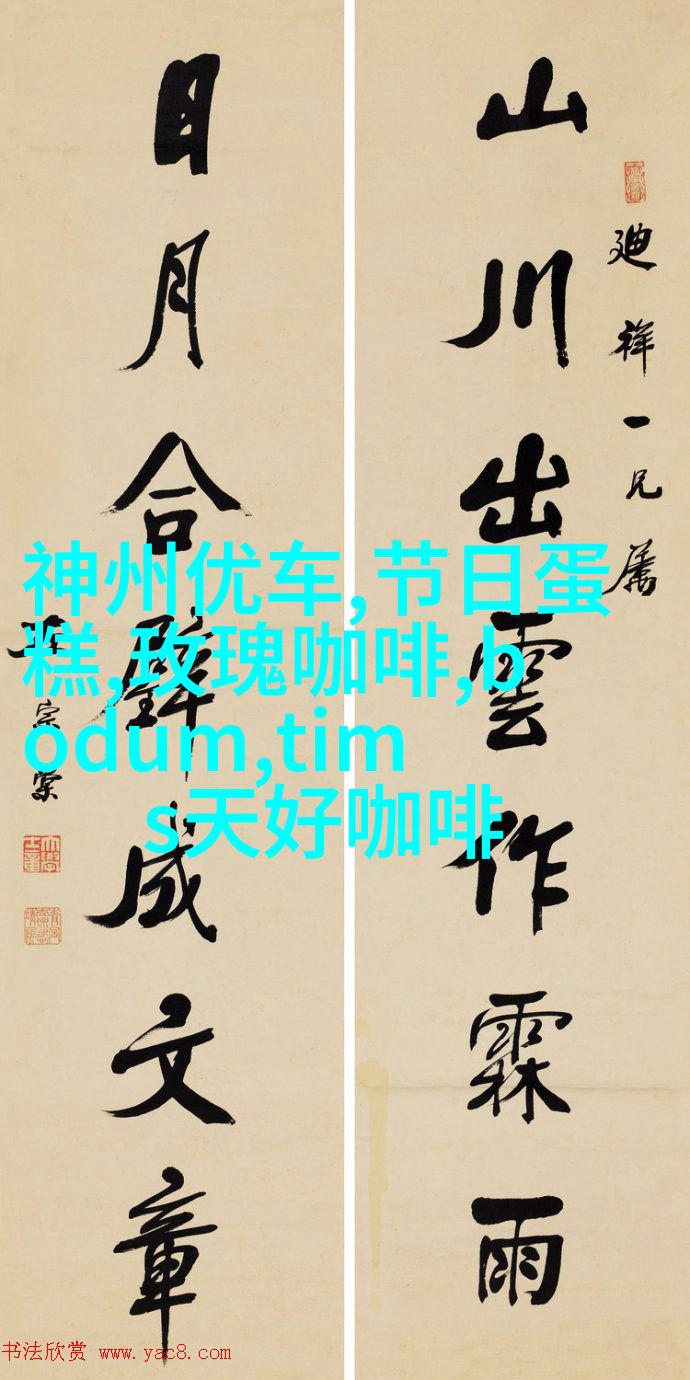 山川出雲作霖雨
廸祥一兄屬
日月合璧成文章
左宗棠
神州优车,节日蛋
糕,玫瑰咖啡,b
odum,tim
s天好咖啡
书法欣赏 www.yac8.com